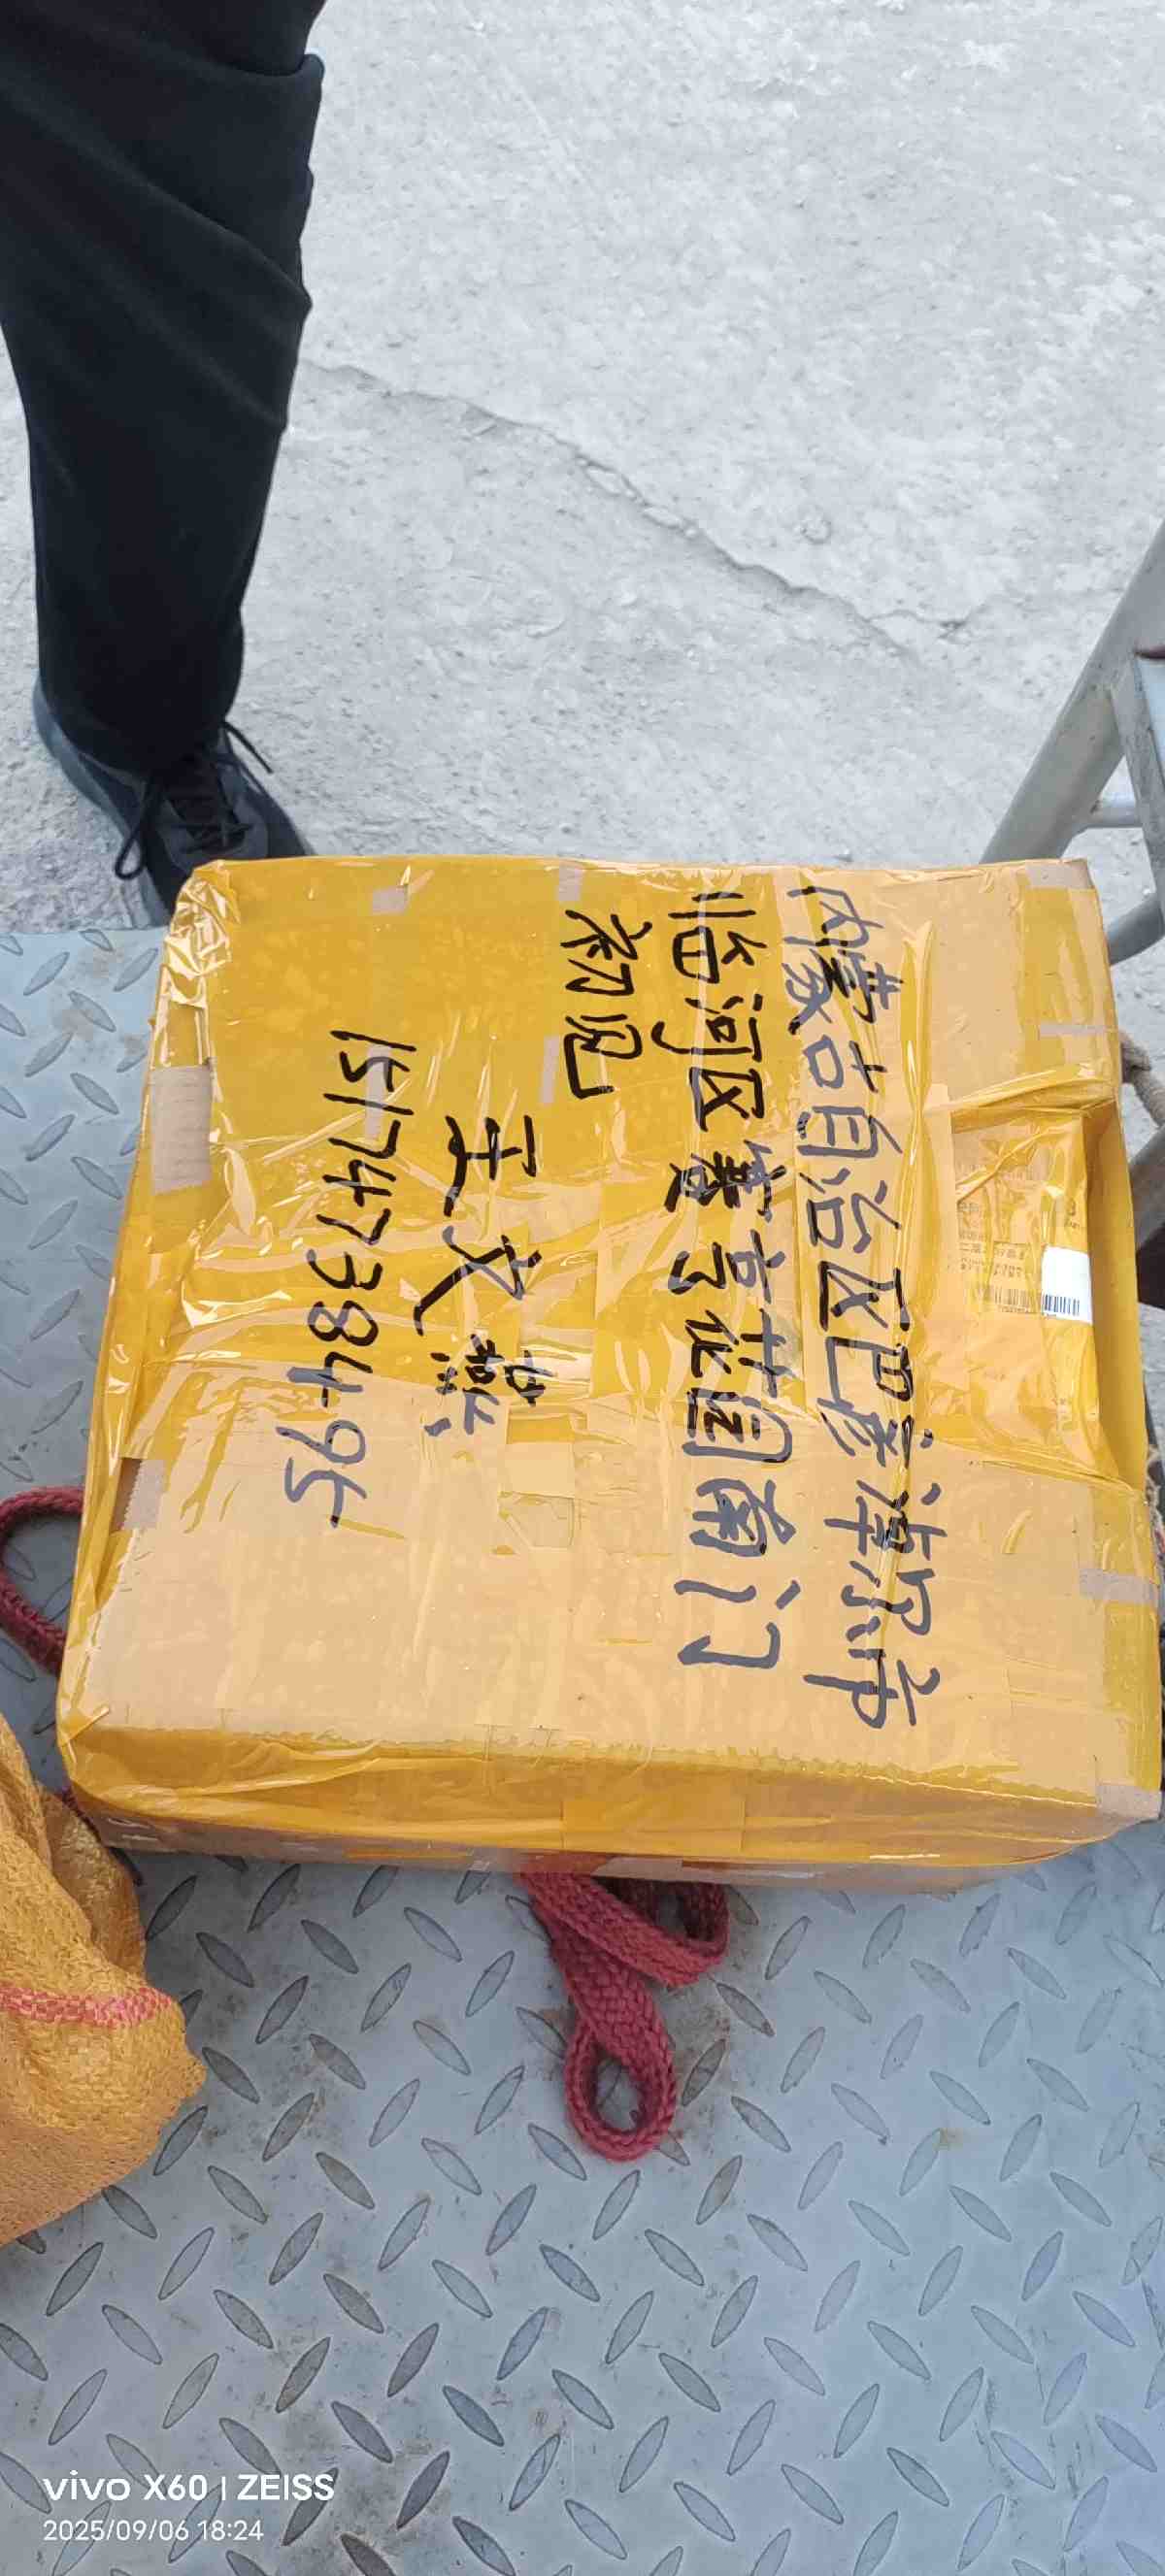 内蒙古自治区巴彦淖尔市
临河区喜号花园南门
初见
王文燕
15174738495
vivo X60 | ZEISS
2025/09/06 18:24